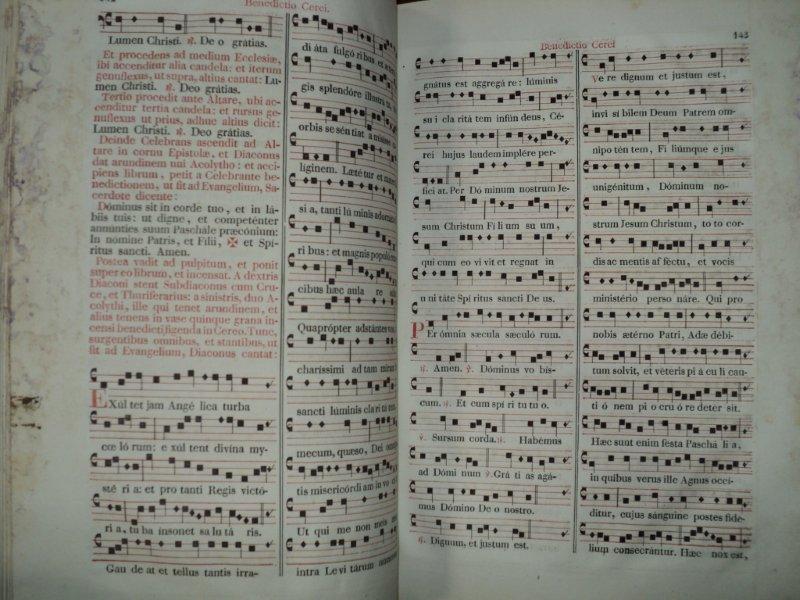 Benedictio Cerei.
Lumen Christi. ℟. De o grátias.
Et procedens ad medium Ecclesiæ,
ibi accenditur alia candela: et iterum
genuflexus, ut supra, altius cantat: Lu-
men Christi. ℟. Deo grátias.
Tertio procedit ante Altare, ubi ac-
cenditur tertia candela: et rursus ge-
nuflexus ut prius, adhuc altius dicit:
Lumen Christi. ℟. Deo grátias.
Deinde Celebrans ascendit ad Al-
tare in cornu Epistolæ, et Diaconus
dat arundinem uni Acolytho: et acci-
piens librum, petit a Celebrante be-
nedictionem, ut fit ad Evangelium, Sa-
cerdote dicente:
Dóminus sit in corde tuo, et in lá-
biis tuis: ut digne, et competénter
annúnties suum Paschale præcónium:
In nomine Patris, et Filii, ✠ et Spí-
ritus sancti. Amen.
Postea vadit ad pulpitum, et ponit
super eo librum, et incensat. A dextris
Diaconi stent Subdiaconus cum Cru-
ce, et Thuriferarius: a sinistris, duo A-
colythi, ille qui tenet arundinem, et
alius tenens in vase quinque grana in-
censi benedicti, figenda in Cereo. Tunc,
surgentibus omnibus, et stantibus, ut
fit ad Evangelium, Diaconus cantat:
EXúl tet jam Angé lica turba
cœ ló rum: e xúl tent divína my-
sté ri a: et pro tanti Regis victó-
ri a, tu ba ínsonet sa lu tá ris.
Gau de at et tellus tantis irra-
di áta fulgó ri bus et æ
gis splendóre illustrá
orbis se sén tiat a
líginem. Læté tur et
si a, tanti lú minis adornáta
ri bus: et magnis populó
cibus hæc aula re
Quaprópter adstántes
charíssimi ad tam miram
sancti lúminis cla ri tá tem,
mecum, quæso, Dei
tis misericórdi am in vo
Ut qui me non meis
intra Le vi tárum
Benedictio Cerei
143
gnátus est aggregá re: lúminis
su i cla ritá tem infún dens, Cé-
rei hujus laudem implére per-
fíci at. Per Dó minum nostrum Je-
sum Christum Fí li um su um,
qui cum eo vi vit et regnat in
u ni táte Spí ritus sancti De us.
PEr ómnia sæcula sæculó rum.
℟. Amen. ℣. Dóminus vo bís-
cum. ℟. Et cum spí ri tu tu o.
℣. Sursum corda. ℟. Habémus
ad Dómi num ℣. Grá ti as agá-
mus Dómino De o nostro.
℟. Dignum, et justum est.
Ve re dignum et justum est,
inví si bilem Deum Patrem om-
nipo tén tem, Fi liúmque e jus
unigénitum, Dóminum no-
strum Jesum Christum, to to cor-
dis ac mentis af féctu, et vocis
ministério perso náre. Qui pro
nobis ætérno Patri, Adæ débi-
tum solvit, et véteris pi á cu li cau-
ti ó nem pi o cru ó re detér sit.
Hæc sunt enim festa Paschá li a,
in quibus verus ille Agnus occí-
ditur, cujus sánguine postes fidé-
lium consecrántur. Hæc nox est,